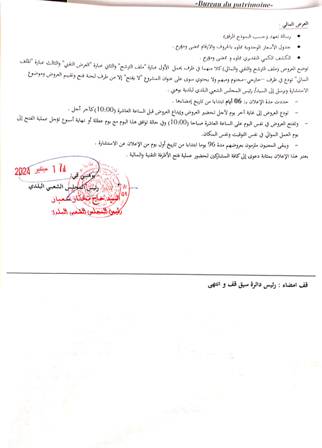 -Bureau du patrimoine-
العرض المالي :
رسالة تعهد (حسب النموذج المرفق)
جدول الأسعار الوحدوية مملوء بالحروف والأرقام ممضي ومؤرخ.
الكشف الكمي التقديري مملوء و ممضي ومؤرخ.
توضع العروض (ملف الترشح والتقني والمالي) كلا منهما في ظرف يحمل الأول عبارة "ملف الترشح" والثاني عبارة "العرض التقني" والثالث عبارة "الملف
المالي" تودع في ظرف خارجي مختوم ومبهم ولا يحتوي سوى على عنوان المشروع "لا يفتح" إلا من طرف لجنة فتح وتقييم العروض وموضوع
الاستشارة ويرسل إلى السيد/ رئيس المجلس الشعبي البلدي لبلدية
- حددت مدة الإعلان بـ: 06 أيام ابتداءا من تاريخ إمضائها.
- تودع العروض إلى غاية آخر يوم لأجل تحضير العروض وإيداع العروض قبل الساعة العاشرة (10:00) كآخر أجل.
- وتفتح العروض في نفس اليوم على الساعة العاشرة صباحا (10:00) وفي حالة توافق هذا اليوم مع يوم عطلة أو نهاية أسبوع تؤجل عملية الفتح إلى
يوم العمل الموالي في نفس التوقيت ونفس المكان.
- ويبقى المتعهدون ملزمون بعروضهم لمدة 96 يوما ابتداءا من تاريخ أول يوم من الإعلان عن الاستشارة.
يعتبر هذا الإعلان بمثابة دعوى إلى كافة المشاركين لحضور عملية فتح الأظرفة التقنية والمالية.
في:
2024
رئيس المجلس الشعبي البلدي
رئيس المجلس الشعبي البلدي
قف امضاء : رئيس دائرة سبق قف و انتهى